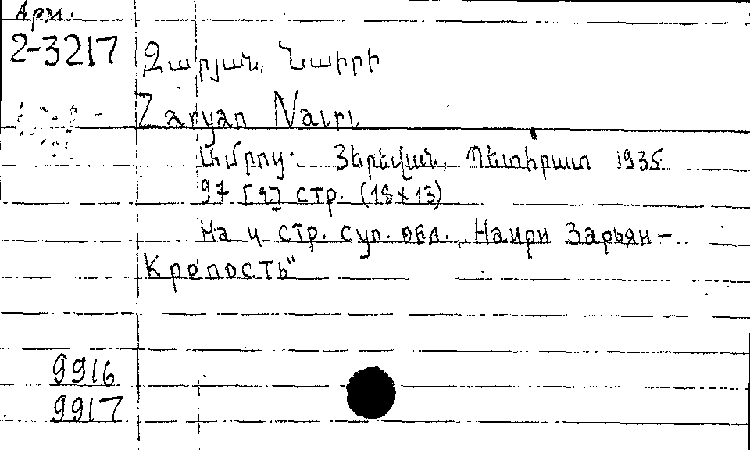 Арм.
2-3217
Զարյան, Նաիրի
Zaryan Nairi
Ամրոց. Յերեվան, Պետհրատ 1935
97 [9] стр. (18х13)
На 4 стр. суп. обл. „Наири Зарьян –
Крепость"
9916
9917